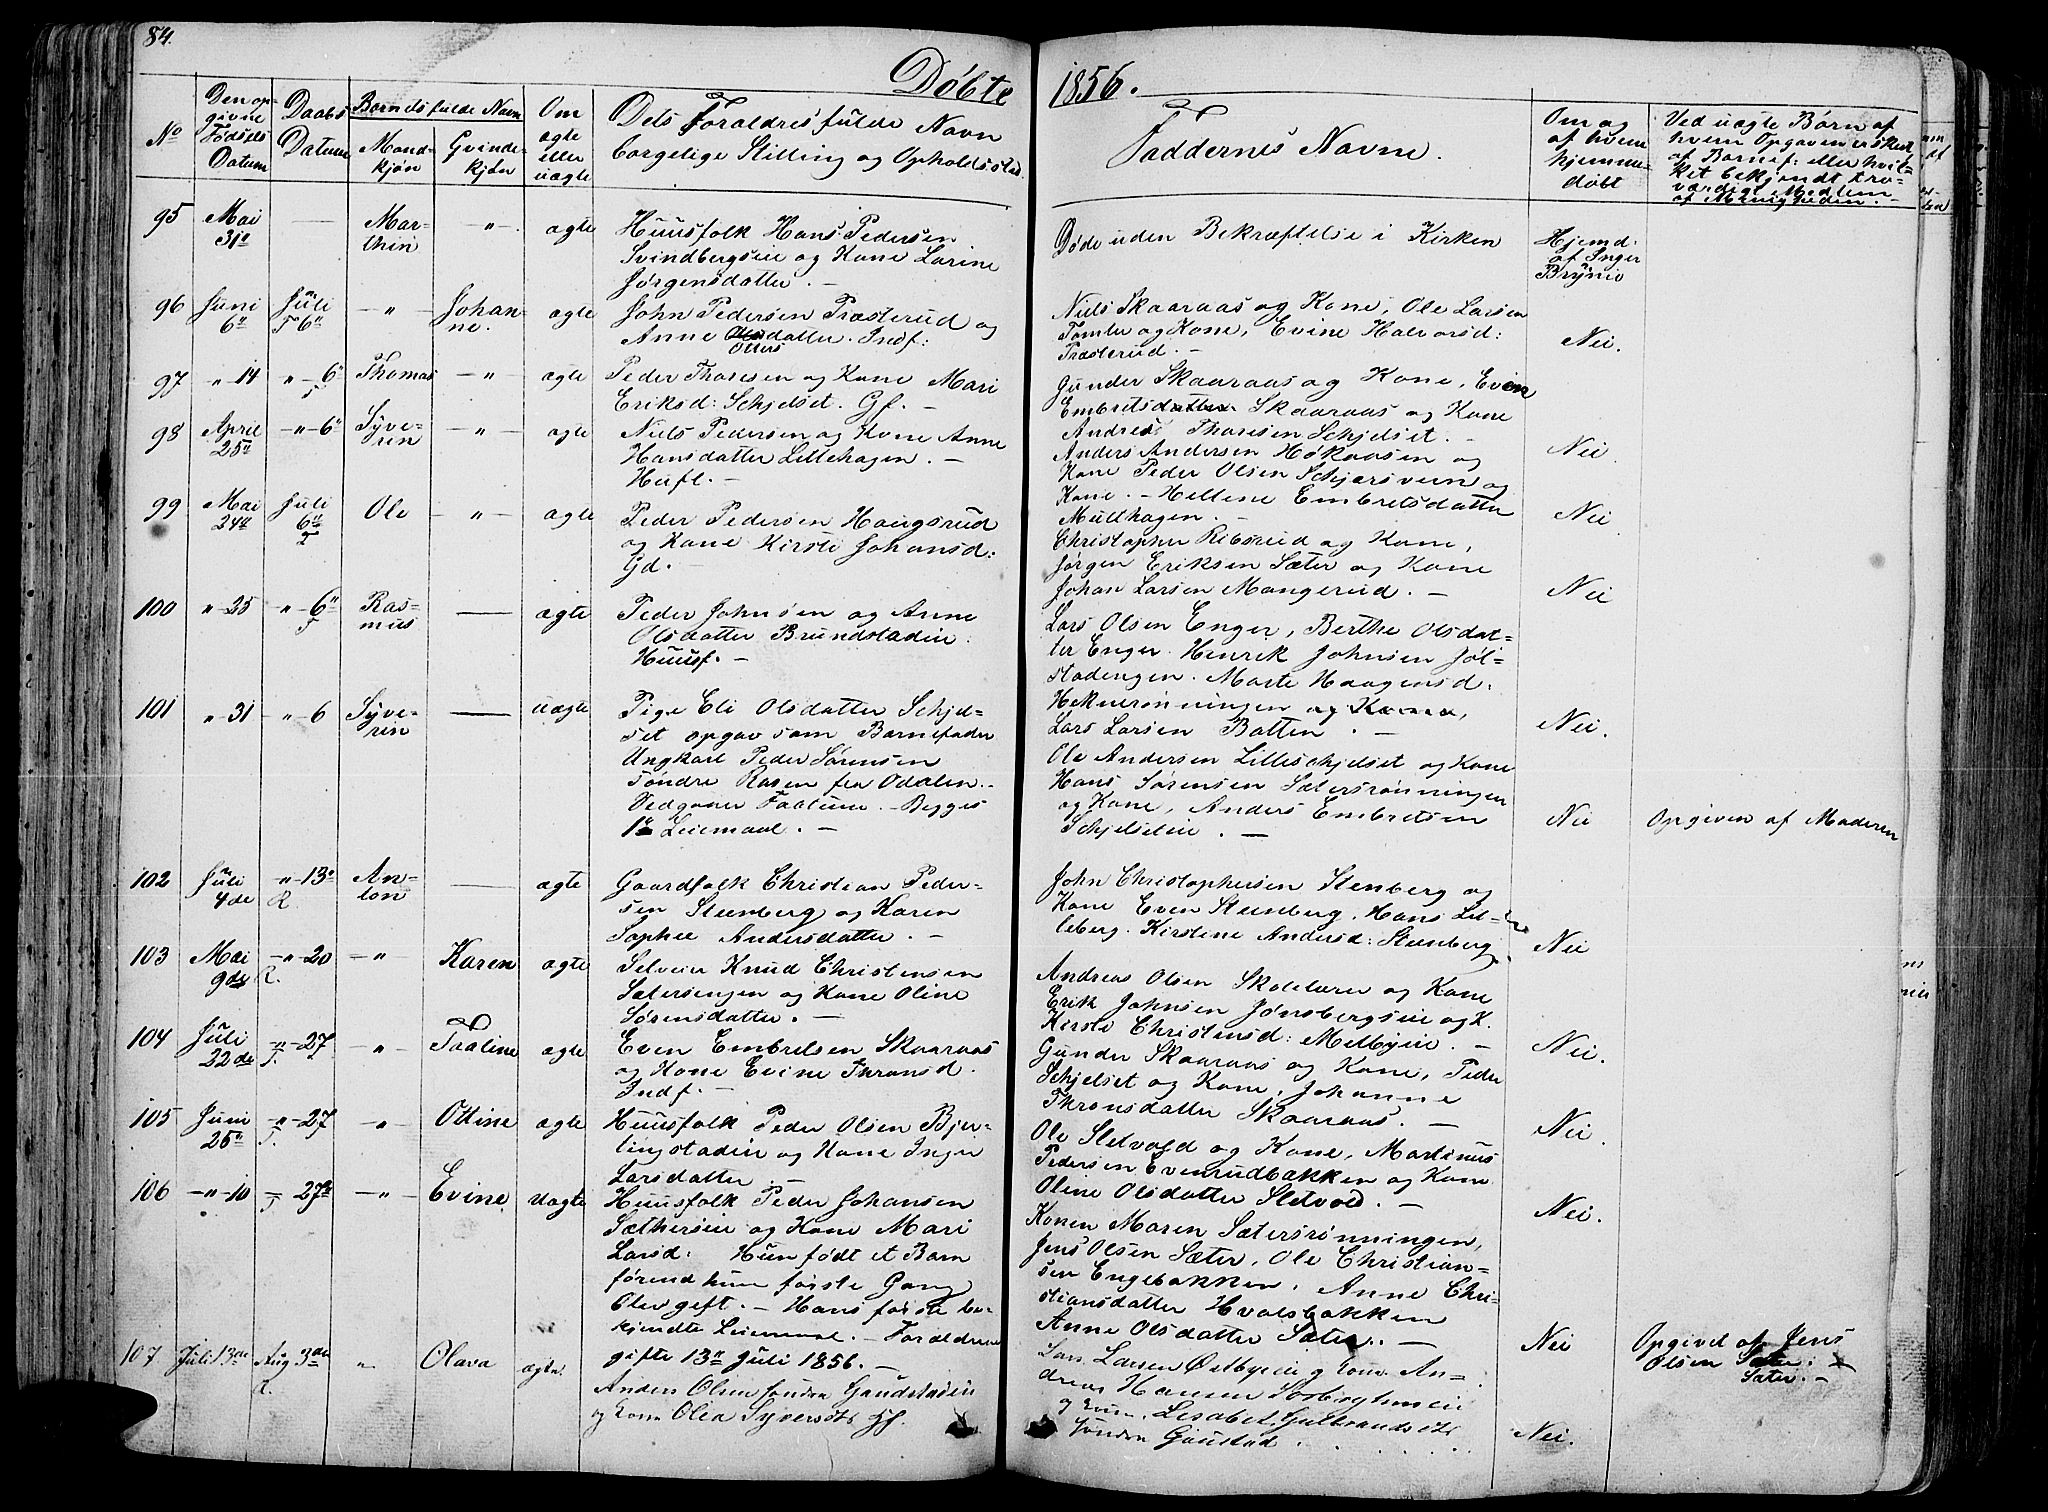 84.
Döbte 1856.
No
Den op-
givne
Födsels
Datum
Daabs
Datum
Barnets fulde Navn
Mand-
kjön
Qvinde-
kjön
Om
ægte
eller
uægte
Dets Forældres fulde Navn
borgelige Stilling og Opholdssted.
Faddernes Navne.
Om og
af hvem
hjemme-
döbt
Ved uægte Børn af
hvem Opgaven er skeet
af Barnef: eller hvil-
ket bekjendt tro-
værdigt Medlem
af Menigheden.
95 Mai 31" — Mar-
thin —"— ægte
Huusfolk Hans Pedersen
Svindbergseie og Kone Larine
Jørgensdatter. —
Døde uden Bekræftelse i Kirken
Hjemd:
af Inger
Brynie
96 Juni 6" Juli 6" —"— Johan-
ne. ægte
John Pedersen Præsterud og
Anne Otters datter. Indf:
Niels Skaaraas og Kone, Ole Larsen
Tomter og Kone, Evine Halvorsd:
Præsterud. —
Nei.
97 "-14 "-6" Thomas —"— ægte
Peder Thoresen og Kone Mari
Eriksd: Schjelset. Gf. —
Gunder Skaaraas og Kone, Even
Embretsdatter Skaaraas og Kone
Andrea Thoresen Schjelset. —
Nei.
98 April 25" "-6" Syve-
rin —"— ægte
Niels Pedersen og Kone Anne
Hansdatter Lillehagen. —
Hufl. —
Anders Andersen Høkaasen og
Kone Peder Olsen Schjærsveen og
Kone. — Hellene Embretsdatter
Mullhagen. —
Nei
99 Mai 24" Juli 6" Ole —"— ægte
Peder Pedersen Haugsrud
og Kone Kirsti Johansd:
Gd. —
Christopher Ribsrud og Kone,
Jørgen Eriksen Sæter og Kone
Johan Larsen Mangerud. —
Nei
100 "25 "-6" Ras-
mus — ægte
Peder Johnsen og Anne
Olsdatter Brundstadeie.
Huusf. —
Lars Olsen Enger, Berthe Olsdat-
ter Enger. Henrik Johnsen Jøl-
stadengen. Marte Haagensd.
Heknerønningen og Kone,
Lars Larsen Batten. —
Nei.
101 "-31 "-6 Syve-
rin — uægte
Pige Eli Olsdatter Schjel-
set opgav som Barnefader
Ungkarl Peder Sørensen
Søndre Rasen fra Odalen. —
Vedgaaer Faldene. — Begges
1ste Leiemaal. —
Ole Andersen Lilleschjelset og Kone
Hans Sørensen Sætersrønningen
og Kone, Anders Embretsen
Schjelseteie. —
Nei
Opgiven af Moderen
102 Juli 4de "-13" An-
ton — ægte
Gaardfolk Christian Peder-
sen Steenberg og Karen
Sophie Andersdatter. —
John Christophersen Stenberg og
Kone Even Steenberg. Hans Lil-
leberg. Kirstine Andersd: Steenberg.
Nei
103 Mai 9de "-20 —"— Karen ægte
Selveier Knud Christensen
Sætersengen og Kone Oline
Sørensdatter. —
Andreas Olsen Skolelærer og Kone
Erik Johnsen Jønsbergseie og K.
Kirsti Christensd: Melbyeie. —
Nei.
104 Juli 22de "-27 —"— Paaline ægte
Even Embretsen Skaaraas
og Kone Evine Thronsd.
Indf. —
Gunder Skaaraas og Kone, Peder
Schjelset og Kone, Johanne
Thronsdatter Skaaraas. —
Nei.
105 Juni 25" "-27 —"— Ottine ægte
Huusfolk Peder Olsen Bjer-
lingstadeie og Kone Inger
Larsdatter. —
Ole Sletvold og Kone, Martinus
Pedersen Evenrudbakken og Kone
Oline Olsdatter Sletvold. —
Nei.
106 —"-10 "-27 —"— Evine uægte
Huusfolk Peder Johansen
Sætherseie og Kone Mari
Larsd: Hun født et Barn
førend hun første Gang
blev gift. — Hans første be-
kjendte Leiemaal. — Forældrene
gifte 13" Juli 1856. —
Konen Maren Sætersrønningen,
Jens Olsen Sæter, Ole Christian-
sen Engebakken, Anne Chri-
stiansdatter Hvalsbakken
Anne Olsdatter Sæter. —
Nei
Opgivet af Jens
Olsen Sæter:
Sæter. —
107 Juli 13de Aug 3de " Olava ægte.
Anders Olsen Søndre Gaustadeie
og Kone Olea Syversdtr Hf.
Lars Larsen Østbyeie g Kone An-
dreas Hansen
og Kone, Lisabet Gulbrandsdtr
Søndre Gaustad.
Nei.